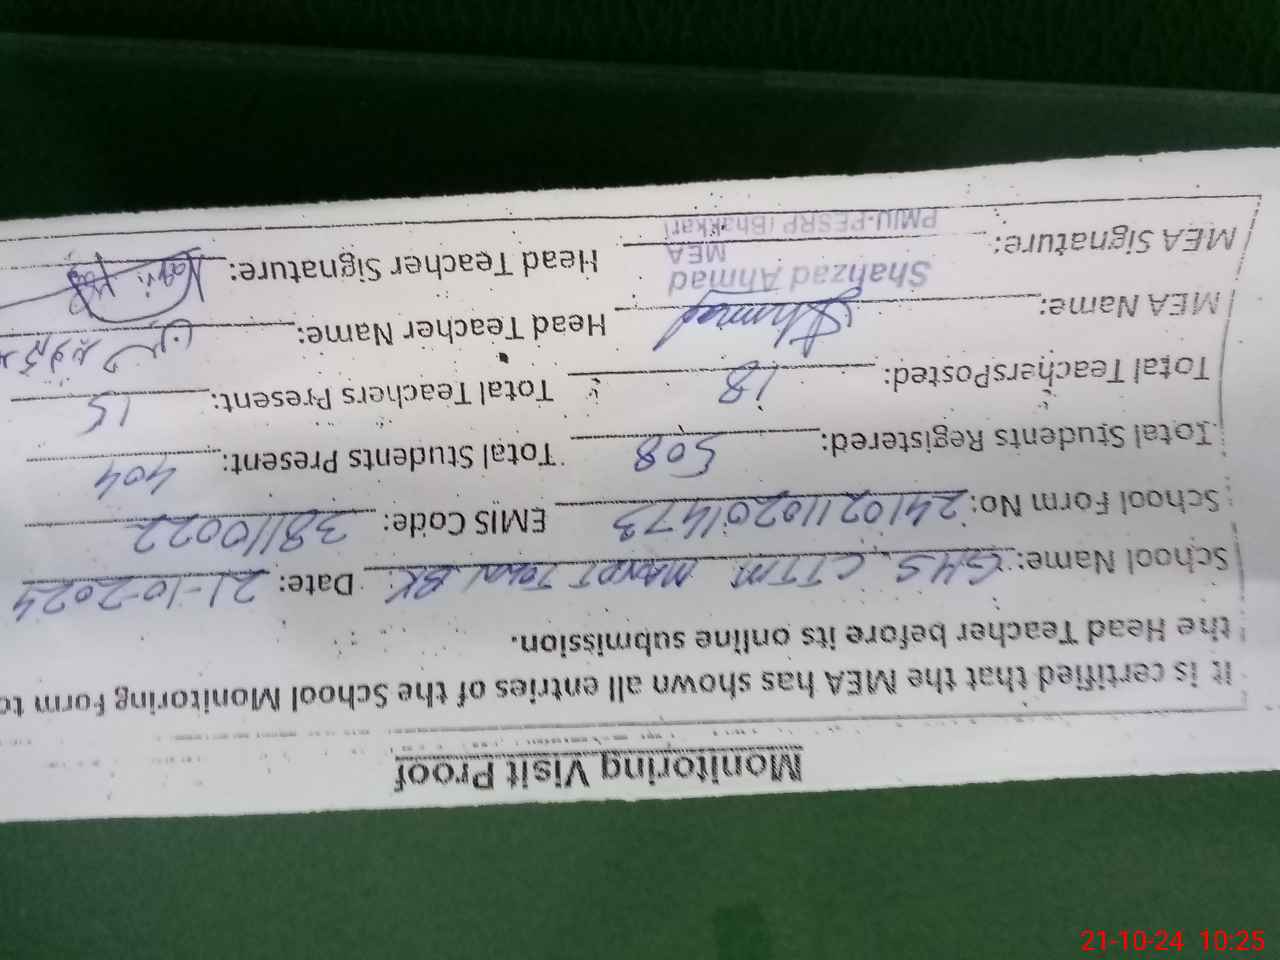 Monitoring Visit Proof
It is certified that the MEA has shown all entries of the School Monitoring Form to
the Head Teacher before its online submission.
School Name: GHS CTTM Date: 21-10-2024
School Form No: 241021102011473 EMIS Code: 38110022
Total Students Registered: 508 Total Students Present: 404
Total TeachersPosted: 18 Total Teachers Present: 15
MEA Name: Head Teacher Name:
Ahmad
Shahzad Ahmad
MEA
PMIU-PESRP (Bhakkar)
MEA Signature: Head Teacher Signature:
21-10-24 10:25